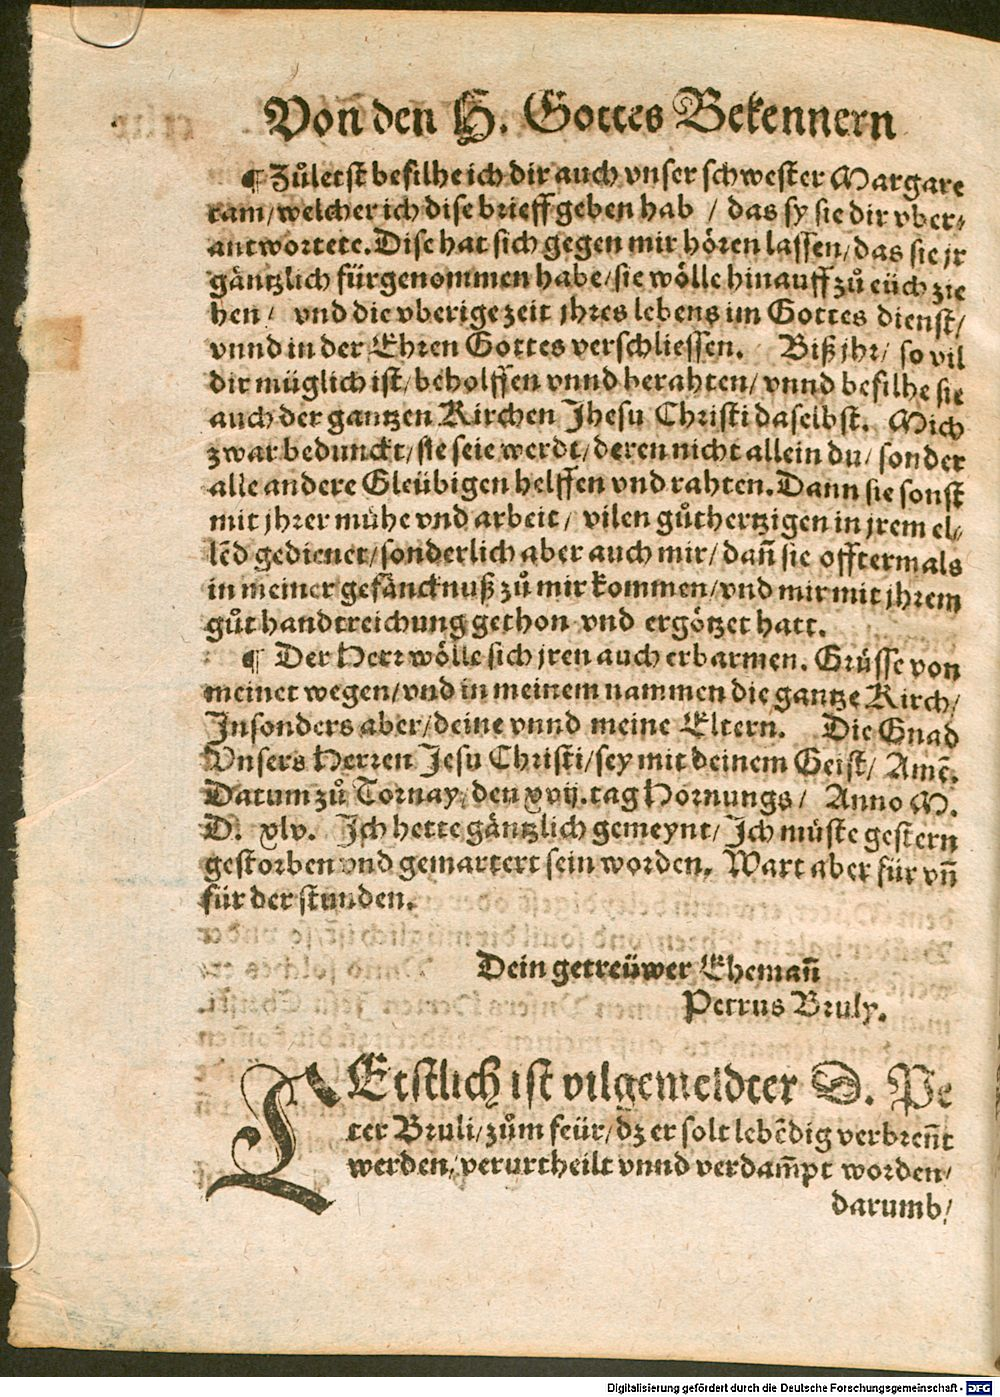 Von den H. Gottes Bekennern
¶ Zůletst befilhe ich dir auch vnser schwester Margare
tam/ welcher ich dise brieff geben hab / das sy sie dir vber⸗
antwortete. Dise hat sich gegen mir hören lassen/ das sie jr
gäntzlich fürgenommen habe/ sie wölle hinauff zů eüch zie
hen/ vnd die vberige zeit jhres lebens im Gottes dienst/
vnnd in der Ehren Gottes verschliessen. Biß jhr/ so vil
dir müglich ist/ beholffen vnnd berahten/ vnnd befilhe sie
auch der gantzen Kirchen Jhesu Christi daselbst. Mich
zwar bedunckt/ sie seie werdt/ deren nicht allein du/ sonder
alle andere Gleübigen helffen vnd rahten. Dann sie sonst
mit jhrer mühe vnd arbeit/ vilen gůthertzigen in jrem el⸗
lẽd gedienet/ sonderlich aber auch mir/ dañ sie offtermals
in meiner gefäncknuß zů mir kommen/ vnd mir mit jhrem
gůt handtreichung gethon vnd ergötzet hatt.
¶ Der Herr wölle sich jren auch erbarmen. Grüsse von
meinet wegen/ vnd in meinem nammen die gantze Kirch/
Insonders aber/ deine vnnd meine Eltern. Die Gnad
Vnsers Herren Jesu Christi/ sey mit deinem Geist/ Amẽ.
Datum zů Tornay/ den xvij. tag Hornungs/ Anno M.
D. xlv. Ich hette gäntzlich gemeynt/ Ich müste gestern
gestorben vnd gemartert sein worden. Wart aber für vñ
für der stunden.
Dein getreüwer Ehemañ
Petrus Bruly.
LEtstlich ist vilgemeldter D. Pe
ter Bruli/ zům feür/ dz er solt lebẽdig verbreñt
werden/ verurtheilt vnnd verdam̃pt worden/
darumb/
Digitalisierung gefördert durch die Deutsche Forschungsgemeinschaft - DFG